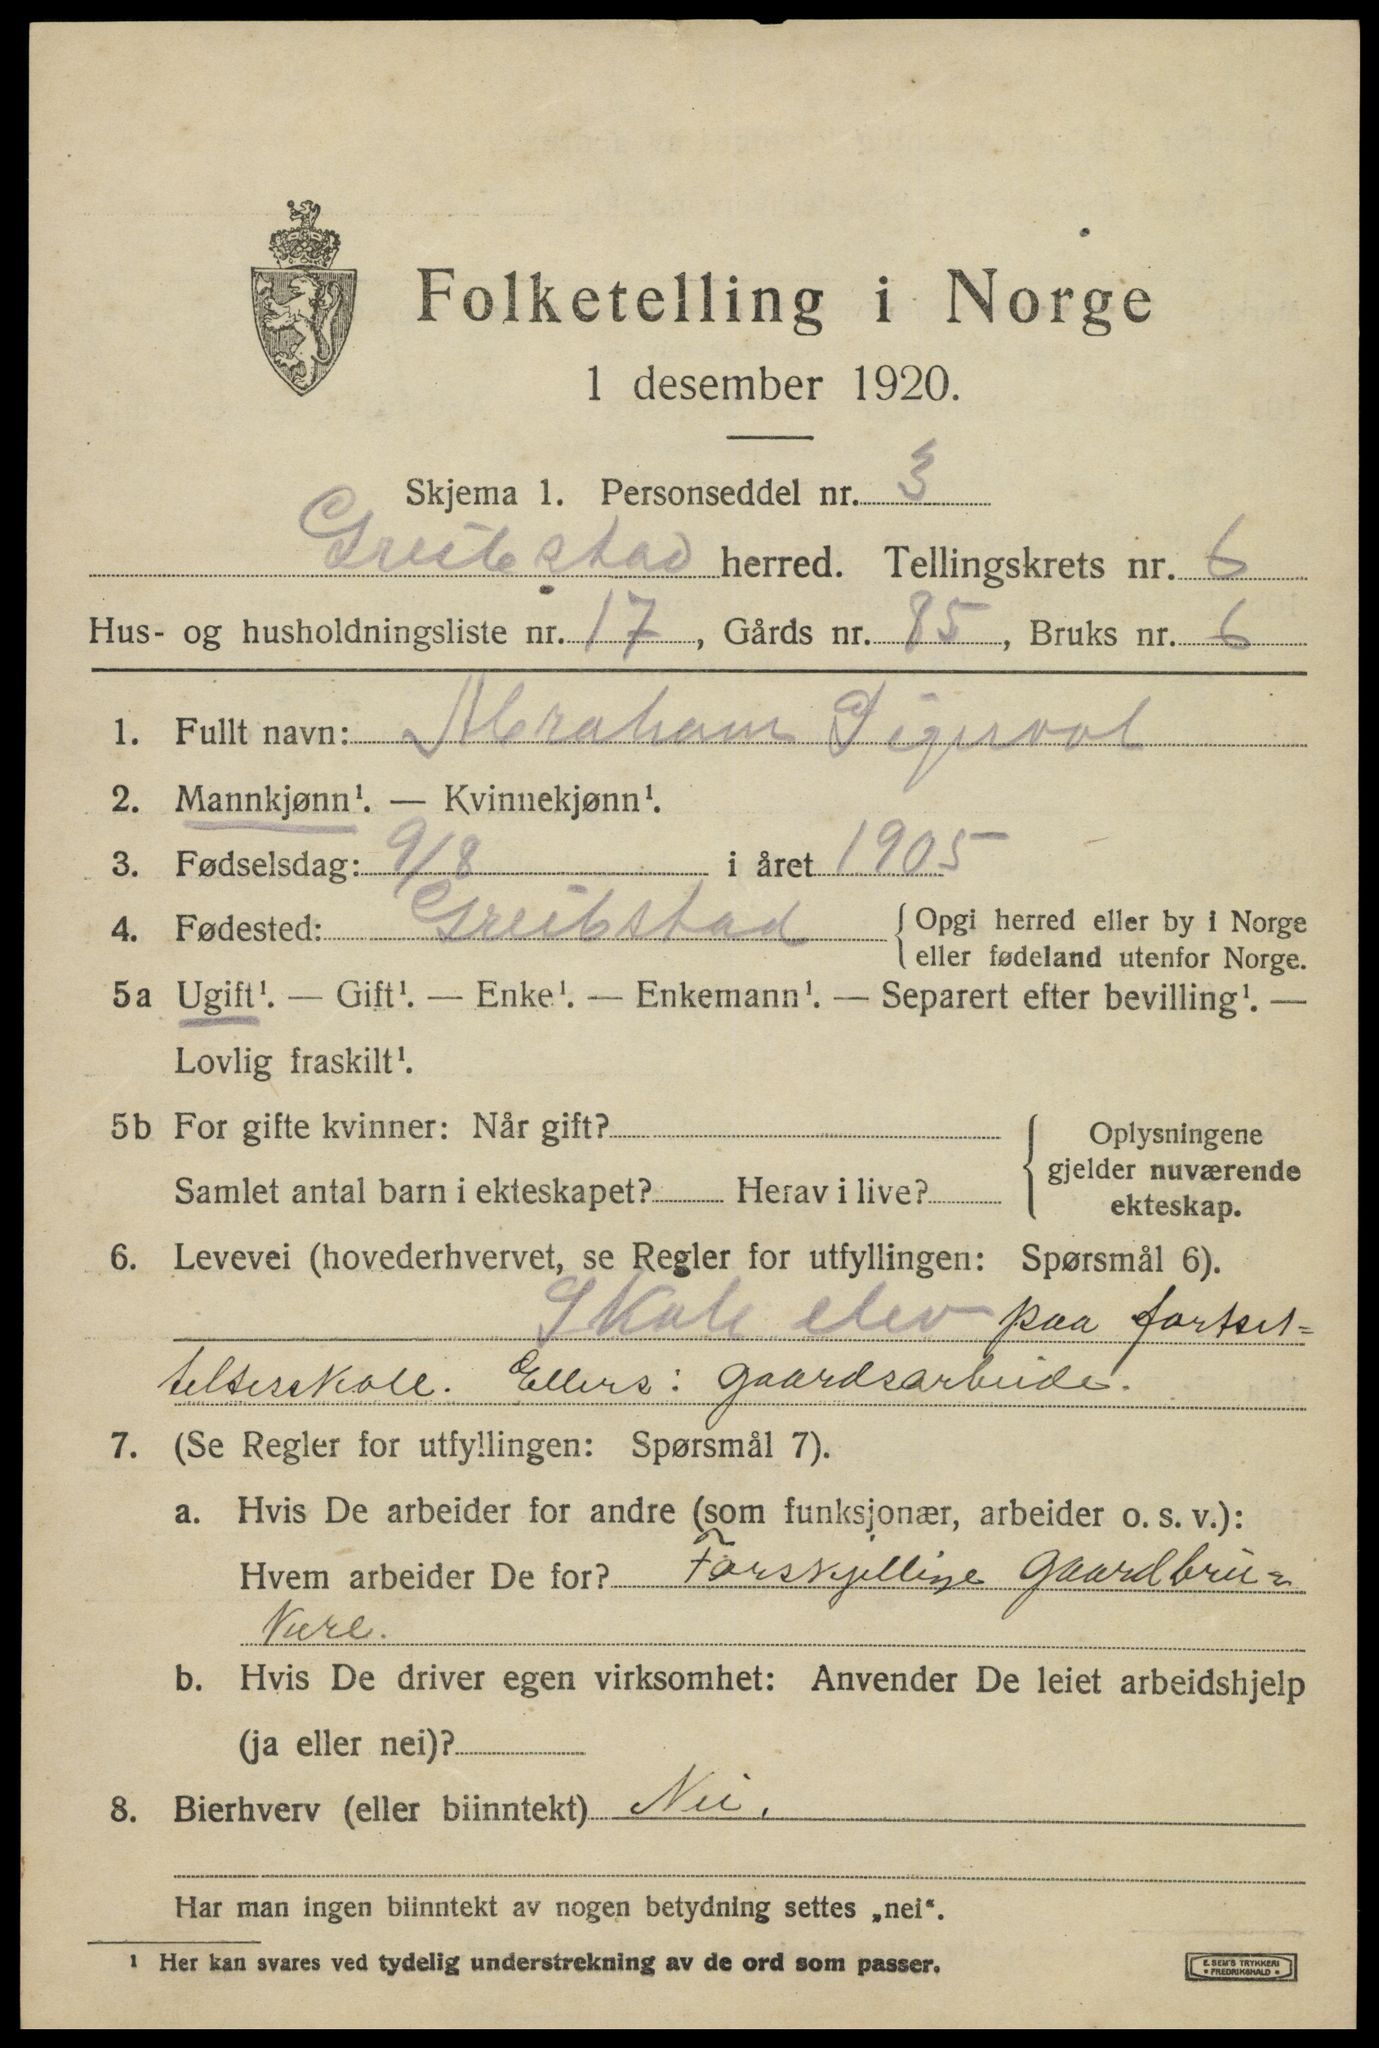 Folketelling i Norge
1 desember 1920.
Skjema 1. Personseddel nr. 3
Greibstad herred. Tellingskrets nr. 6
Hus- og husholdningsliste nr. 17, Gårds nr. 85, Bruks nr. 6
1. Fullt navn: Abraham Tigervol
2. Mannkjønn¹. — Kvinnekjønn¹.
3. Fødselsdag: 9/8 i året 1905
4. Fødested: Greibstad { Opgi herred eller by i Norge
eller fødeland utenfor Norge.
5a Ugift¹. — Gift¹. — Enke¹. — Enkemann¹. — Separert efter bevilling¹. —
Lovlig fraskilt¹.
5b For gifte kvinner: Når gift?
Samlet antal barn i ekteskapet? Herav i live?
{ Oplysningene
gjelder nuværende
ekteskap.
6. Levevei (hovederhvervet, se Regler for utfyllingen: Spørsmål 6).
Skole elev paa fortset-
telsesskole. Ellers: gaardsarbeide.
7. (Se Regler for utfyllingen: Spørsmål 7).
a. Hvis De arbeider for andre (som funksjonær, arbeider o. s. v.):
Hvem arbeider De for? Forskjellige gaardbru=
kere.
b. Hvis De driver egen virksomhet: Anvender De leiet arbeidshjelp
(ja eller nei)?
8. Bierhverv (eller biinntekt) Nei.
Har man ingen biinntekt av nogen betydning settes „nei“.
¹ Her kan svares ved tydelig understrekning av de ord som passer.
E. SEM'S TRYKKERI
• FREDRIKSHALD •